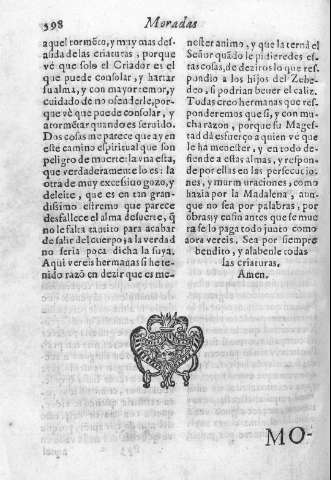 398 Moradas
aquel tormẽto, y muy mas des-
asida de las criaturas, porque
vè que solo el Criador es el
que puede consolar, y hartar
su alma, y con mayor temor, y
cuidado de no ofenderle, por-
que vè que puede consolar, y
atormẽtar quando es seruido.
Dos cosas me parece que ay en
este camino espiritual que son
peligro de muerte: la vna esta,
que verdaderamente lo es: la
otra de muy excessiuo gozo, y
deleite, que es en tan gran-
dissimo estremo que parece
desfallece el alma de suerte, q̃
no le falta tantito para acabar
de salir del cuerpo, a la verdad
no seria poca dicha la suya.
Aqui vereis hermanas si he te-
nido razõ en dezir que es me-
nester animo, y que la ternà el
Señor quãdo le pidieredes es-
tas cosas, de deziros lo que res-
pondio a los hijos del Zebe-
deo, si podrian beuer el caliz.
Todas creo hermanas que res-
ponderemos que si, y con mu-
cha razon, porque su Mages-
tad dà esfuerço a quien vè que
le ha menester, y en todo de-
fiende a estas almas, y respon-
de por ellas en las persecucio-
nes, y murmuraciones, como
hazia por la Madalena, aun-
que no sea por palabras, por
obras: y en fin antes que se mue
ra se lo paga todo junto como
aora vereis. Sea por siempre
bendito, y alabenle todas
las criaturas,
Amen.
MO-